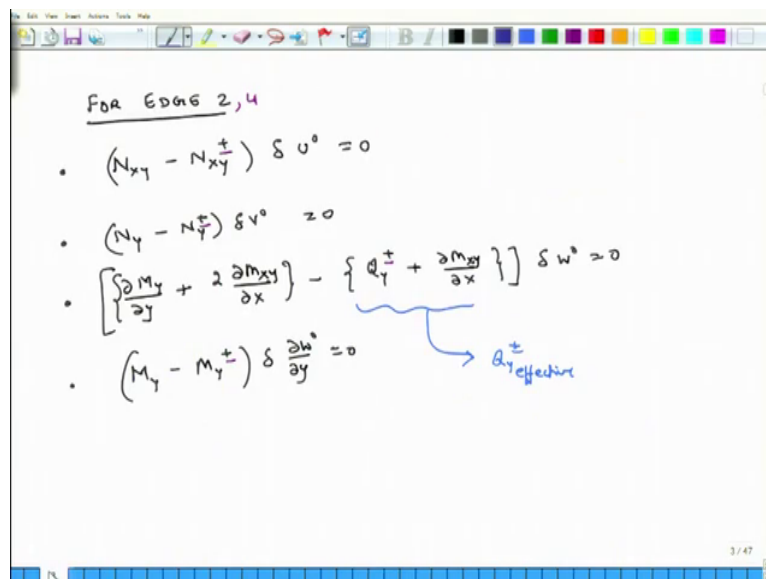 File Edit View Insert Actions Tools Help
B I
FOR EDGE 2, 4
• (Nxy - Nxy±) δ u⁰ = 0
• (Ny - Ny±) δ v⁰ = 0
• [{∂My/∂y + 2 ∂Mxy/∂x} - {Qy± + ∂Mxy/∂x}] δ w⁰ = 0
Qy± effective
• (My - My±) δ ∂w⁰/∂y = 0
3 / 47